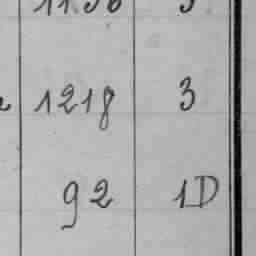 1218 3
92 1D